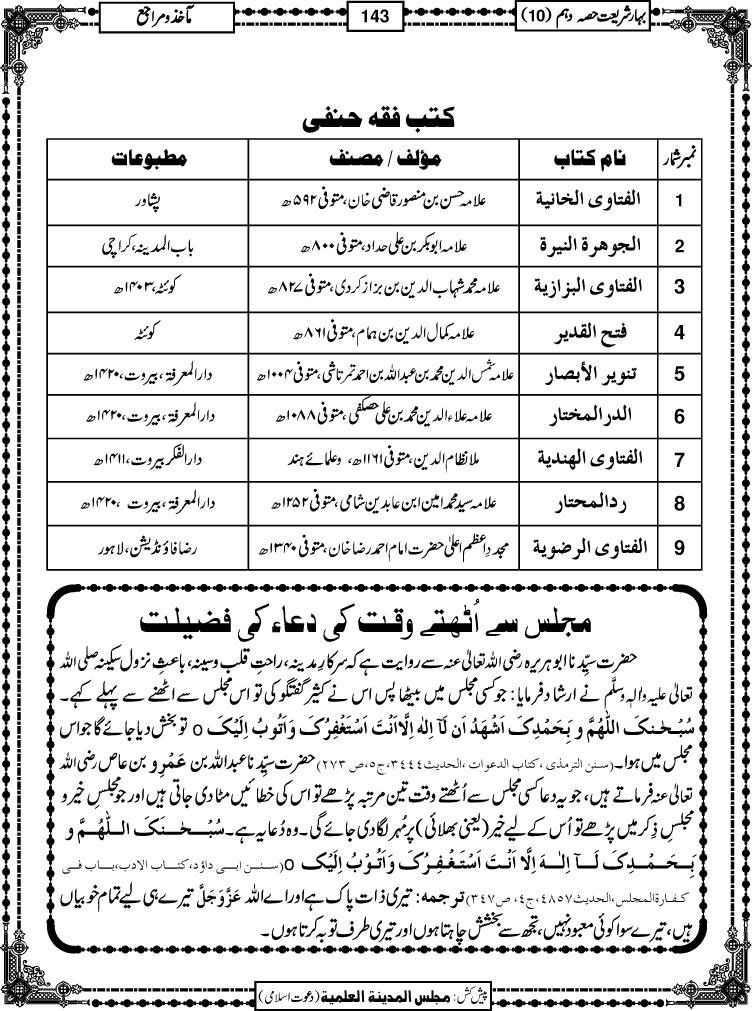 بہارِ شریعت حصہ دہم (10)
143
مآخذ و مراجع
کتب فقہ حنفی
نمبر شمار	نام کتاب	مؤلف / مصنف	مطبوعات
1	الفتاوى الخانية	علامہ حسن بن منصور قاضی خان، متوفی ۵۹۲ھ	پشاور
2	الجوهرة النيرة	علامہ ابوبکر بن علی حداد، متوفی ۸۰۰ھ	باب المدینہ، کراچی
3	الفتاوى البزازية	علامہ محمد شہاب الدین بن بزاز کردی، متوفی ۸۲۷ھ	کوئٹہ، ۱۴۰۳ھ
4	فتح القدير	علامہ کمال الدین بن ہمام، متوفی ۸۶۱ھ	کوئٹہ
5	تنوير الأبصار	علامہ شمس الدین محمد بن عبداللہ بن احمد تمرتاشی، متوفی ۱۰۰۴ھ	دار المعرفة، بیروت، ۱۴۲۰ھ
6	الدر المختار	علامہ علاء الدین محمد بن علی حصکفی، متوفی ۱۰۸۸ھ	دار المعرفة، بیروت، ۱۴۲۰ھ
7	الفتاوى الهندية	ملا نظام الدین، متوفی ۱۱۶۱ھ، وعلمائے ہند	دار الفکر بیروت، ۱۴۱۱ھ
8	ردالمحتار	علامہ سید محمد امین ابن عابدین شامی، متوفی ۱۲۵۲ھ	دار المعرفة، بیروت ،۱۴۲۰ھ
9	الفتاوى الرضوية	مجددِ اعظم اعلیٰ حضرت امام احمد رضا خان، متوفی ۱۳۴۰ھ	رضا فاؤنڈیشن، لاہور
مجلس سے اُٹھتے وقت کی دعاء کی فضیلت
حضرت سیِّدنا ابوہریرہ رضی اللہ تعالیٰ عنہ سے روایت ہے کہ سرکارِ مدینہ، راحتِ قلب وسینہ، باعثِ نزولِ سکینہ صلی اللہ
تعالیٰ علیہ واٰلہٖ وسلَّم نے ارشاد فرمایا: جو کسی مجلس میں بیٹھا پس اس نے کثیر گفتگو کی تو اس مجلس سے اٹھنے سے پہلے کہے۔
سُبْحٰنَکَ اللّٰهُمَّ وَ بِحَمْدِکَ اَشْهَدُ اَن لَّآ اِلٰهَ اِلَّا اَنْتَ اَسْتَغْفِرُکَ وَ اَتُوْبُ اِلَیْکَ o تو بخش دیا جائے گا جو اس
مجلس میں ہوا۔ (سنن الترمذی ، کتاب الدعوات ،الحدیث ۳۴۴۴، ج۵، ص ۲۷۳) حضرت سیِّدنا عبداللہ بن عَمْرِو بن عاص رضی اللہ
تعالیٰ عنہ فرماتے ہیں، جو یہ دعا کسی مجلس سے اُٹھتے وقت تین مرتبہ پڑھے تو اس کی خطائیں مٹا دی جاتی ہیں اور جو مجلسِ خیر و
مجلسِ ذِکر میں پڑھے تو اُس کے لیے خیر (یعنی بھلائی) پر مُہر لگا دی جائے گی۔ وہ دُعا یہ ہے۔ سُبْحٰنَکَ اللّٰهُمَّ وَ
بِحَمْدِکَ لَآ اِلٰهَ اِلَّا اَنْتَ اَسْتَغْفِرُکَ وَ اَتُوْبُ اِلَیْکَ o (سنن ابی داؤد، کتاب الادب، باب فی
کفارۃ المجلس، الحدیث ۴۸۵۷، ج۴، ص ۳۴۷) ترجمه: تیری ذات پاک ہے اور اے اللہ عَزَّوَجَلَّ تیرے ہی لیے تمام خوبیاں
ہیں، تیرے سوا کوئی معبود نہیں، تجھ سے بخشش چاہتا ہوں اور تیری طرف توبہ کرتا ہوں۔
پیش کش: مجلس المدینة العلمیة (دعوت اسلامی)